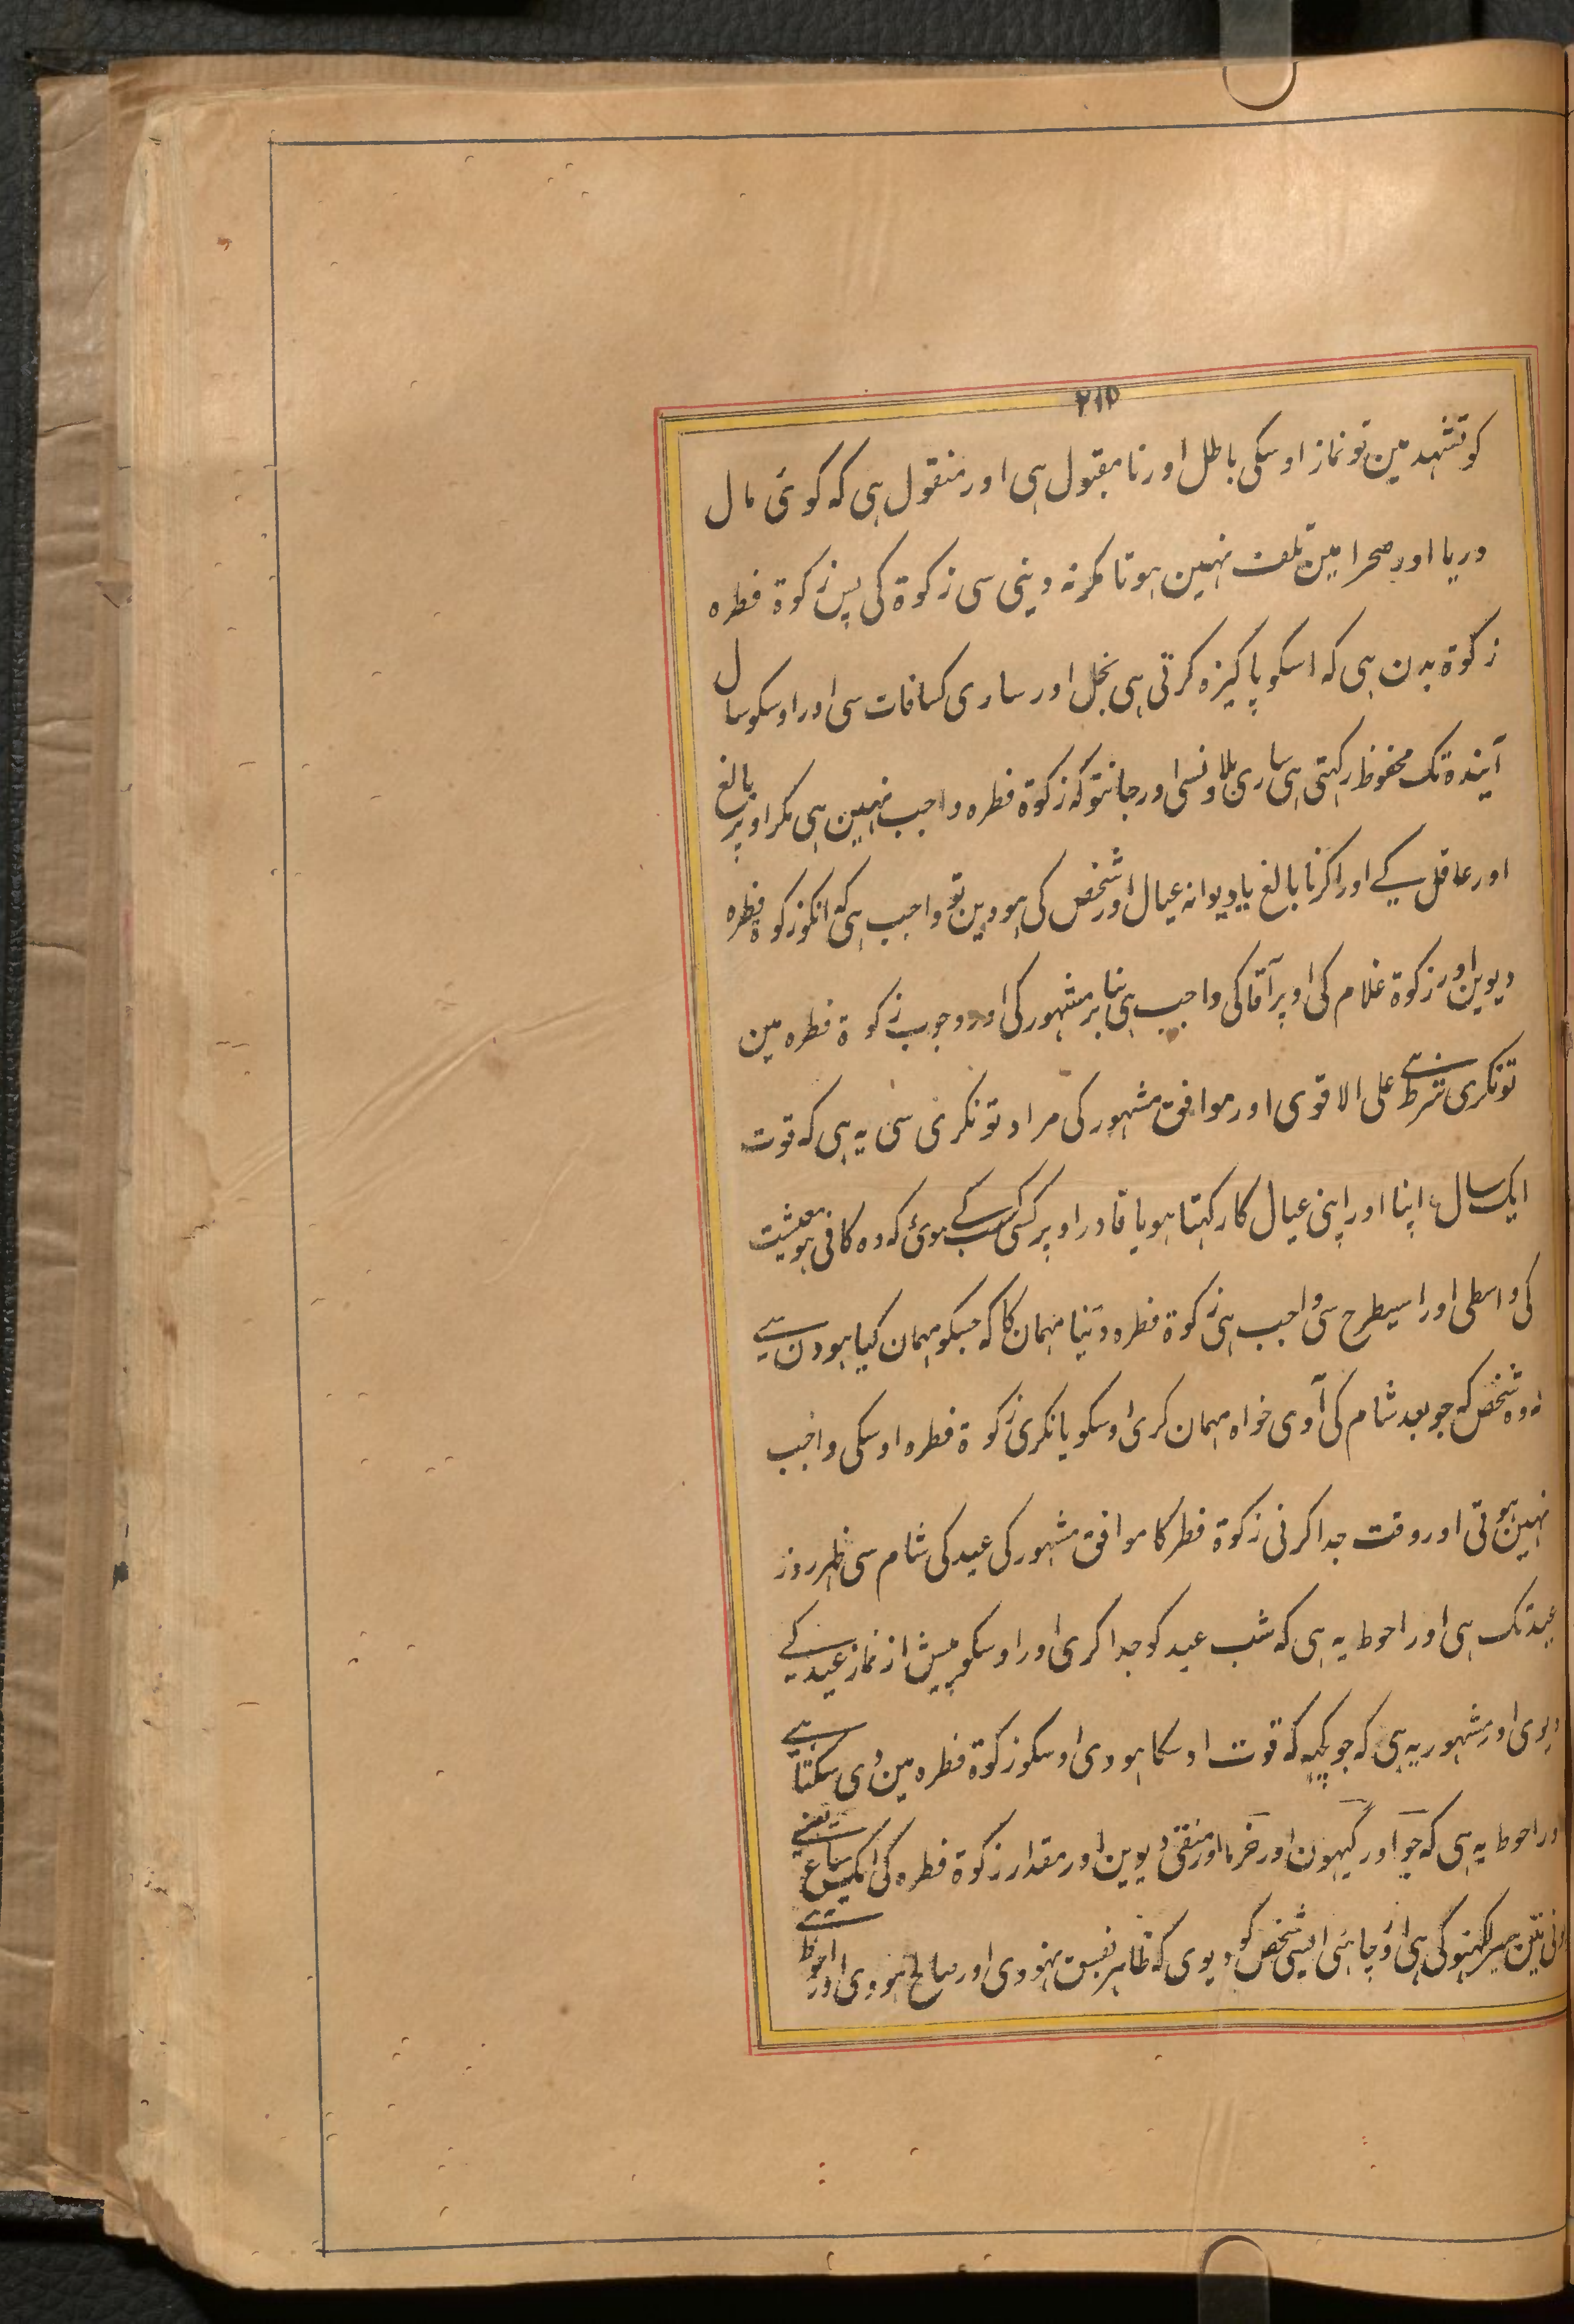 ۲۱۵
کو تشہد مین تو نماز اوسکی باطل اور نا مقبول ہی اور منقول ہی کہ کوئی مال
دریا اور صحرا مین تلف نہین ہوتا مگر نہ دینی سی زکوۃ کی پس زکوۃ فطرہ
زکوۃ بدن ہی کہ اسکو پاکیزہ کرتی ہی بخل اور ساری کسافات سی اور اوسکو سال
آیندہ تک محفوظ رکہتی ہی ساری بلاونسی اور جانتو کہ زکوۃ فطرہ واجب نہین ہی مگر اوپر بالغ
اور عاقل کے اور اگر نا بالغ یا دیوانہ عیال اور شخص کی ہووین تو واجب ہی کہ انکو زکوۃ فطرہ
دیوین اور زکوۃ غلام کی اوپر آقا کی واجب ہی بنا بر مشہور کی اور وجوب زکوۃ فطرہ مین
تونگری شرط ہے علی الاقوی اور موافق مشہور کی مراد تونگری سی یہ ہی کہ قوت
ایک سال اپنا اور اپنی عیال کا رکہتا ہو یا قادر اوپر کسی کسب کے ہوئ کہ وہ کافی ہو معیشت
کی واسطی اور اسیطرح سی واجب ہی زکوۃ فطرہ دینا مہمان کا کہ جسکو مہمان کیا ہو دن سے
نہ وہ شخص کہ جو بعد شام کی آوی خواہ مہمان کری اوسکو یا نکری زکوۃ فطرہ اوسکی واجب
نہین ہوتی اور وقت جدا کرنی زکوۃ فطر کا موافق مشہور کی عید کی شام سی ظہر روز
عید تک ہی اور احوط یہ ہی کہ شب عید کو جدا کری اور اوسکو پیش از نماز عید کے
دیوی اور مشہور یہ ہی کہ جو کچہ کہ قوت اوسکا ہووی اوسکو زکوۃ فطرہ مین دی سکتا ہے
اور احوط یہ ہی کہ جو اور گیہون اور خرما اور منقی دیوین اور مقدار زکوۃ فطرہ کی ایک صاع ہے یعنے
تین سیر لکہنو کی ہی اور چاہئی ایسی شخص کو دیوی کہ ظاہر بفسق نہووی اور صالح ہووی اور احوط ہے